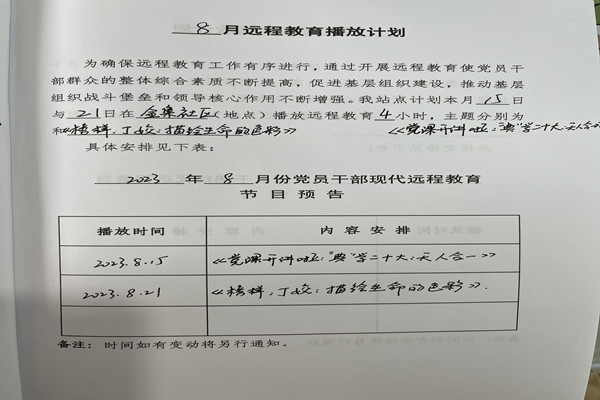 8 月远程教育播放计划
为确保远程教育工作有序进行，通过开展远程教育使党员干
部群众的整体综合素质不断提高，促进基层组织建设，推动基层
组织战斗堡垒和领导核心作用不断增强。我站点计划本月 15 日
与 21 日在 金集社区（地点）播放远程教育 4 小时，主题分别为
《党课开讲啦："典"学二十大：天人合一》
和《榜样，丁姣：描绘生命的色彩》
具体安排见下表：
2023 年 8 月份党员干部现代远程教育
节目预告
播放时间 内容安排
2023.8.15 《党课开讲啦："典"学二十大：天人合一》
2023.8.21 《榜样，丁姣：描绘生命的色彩》.
备注：时间如有变动将另行通知。